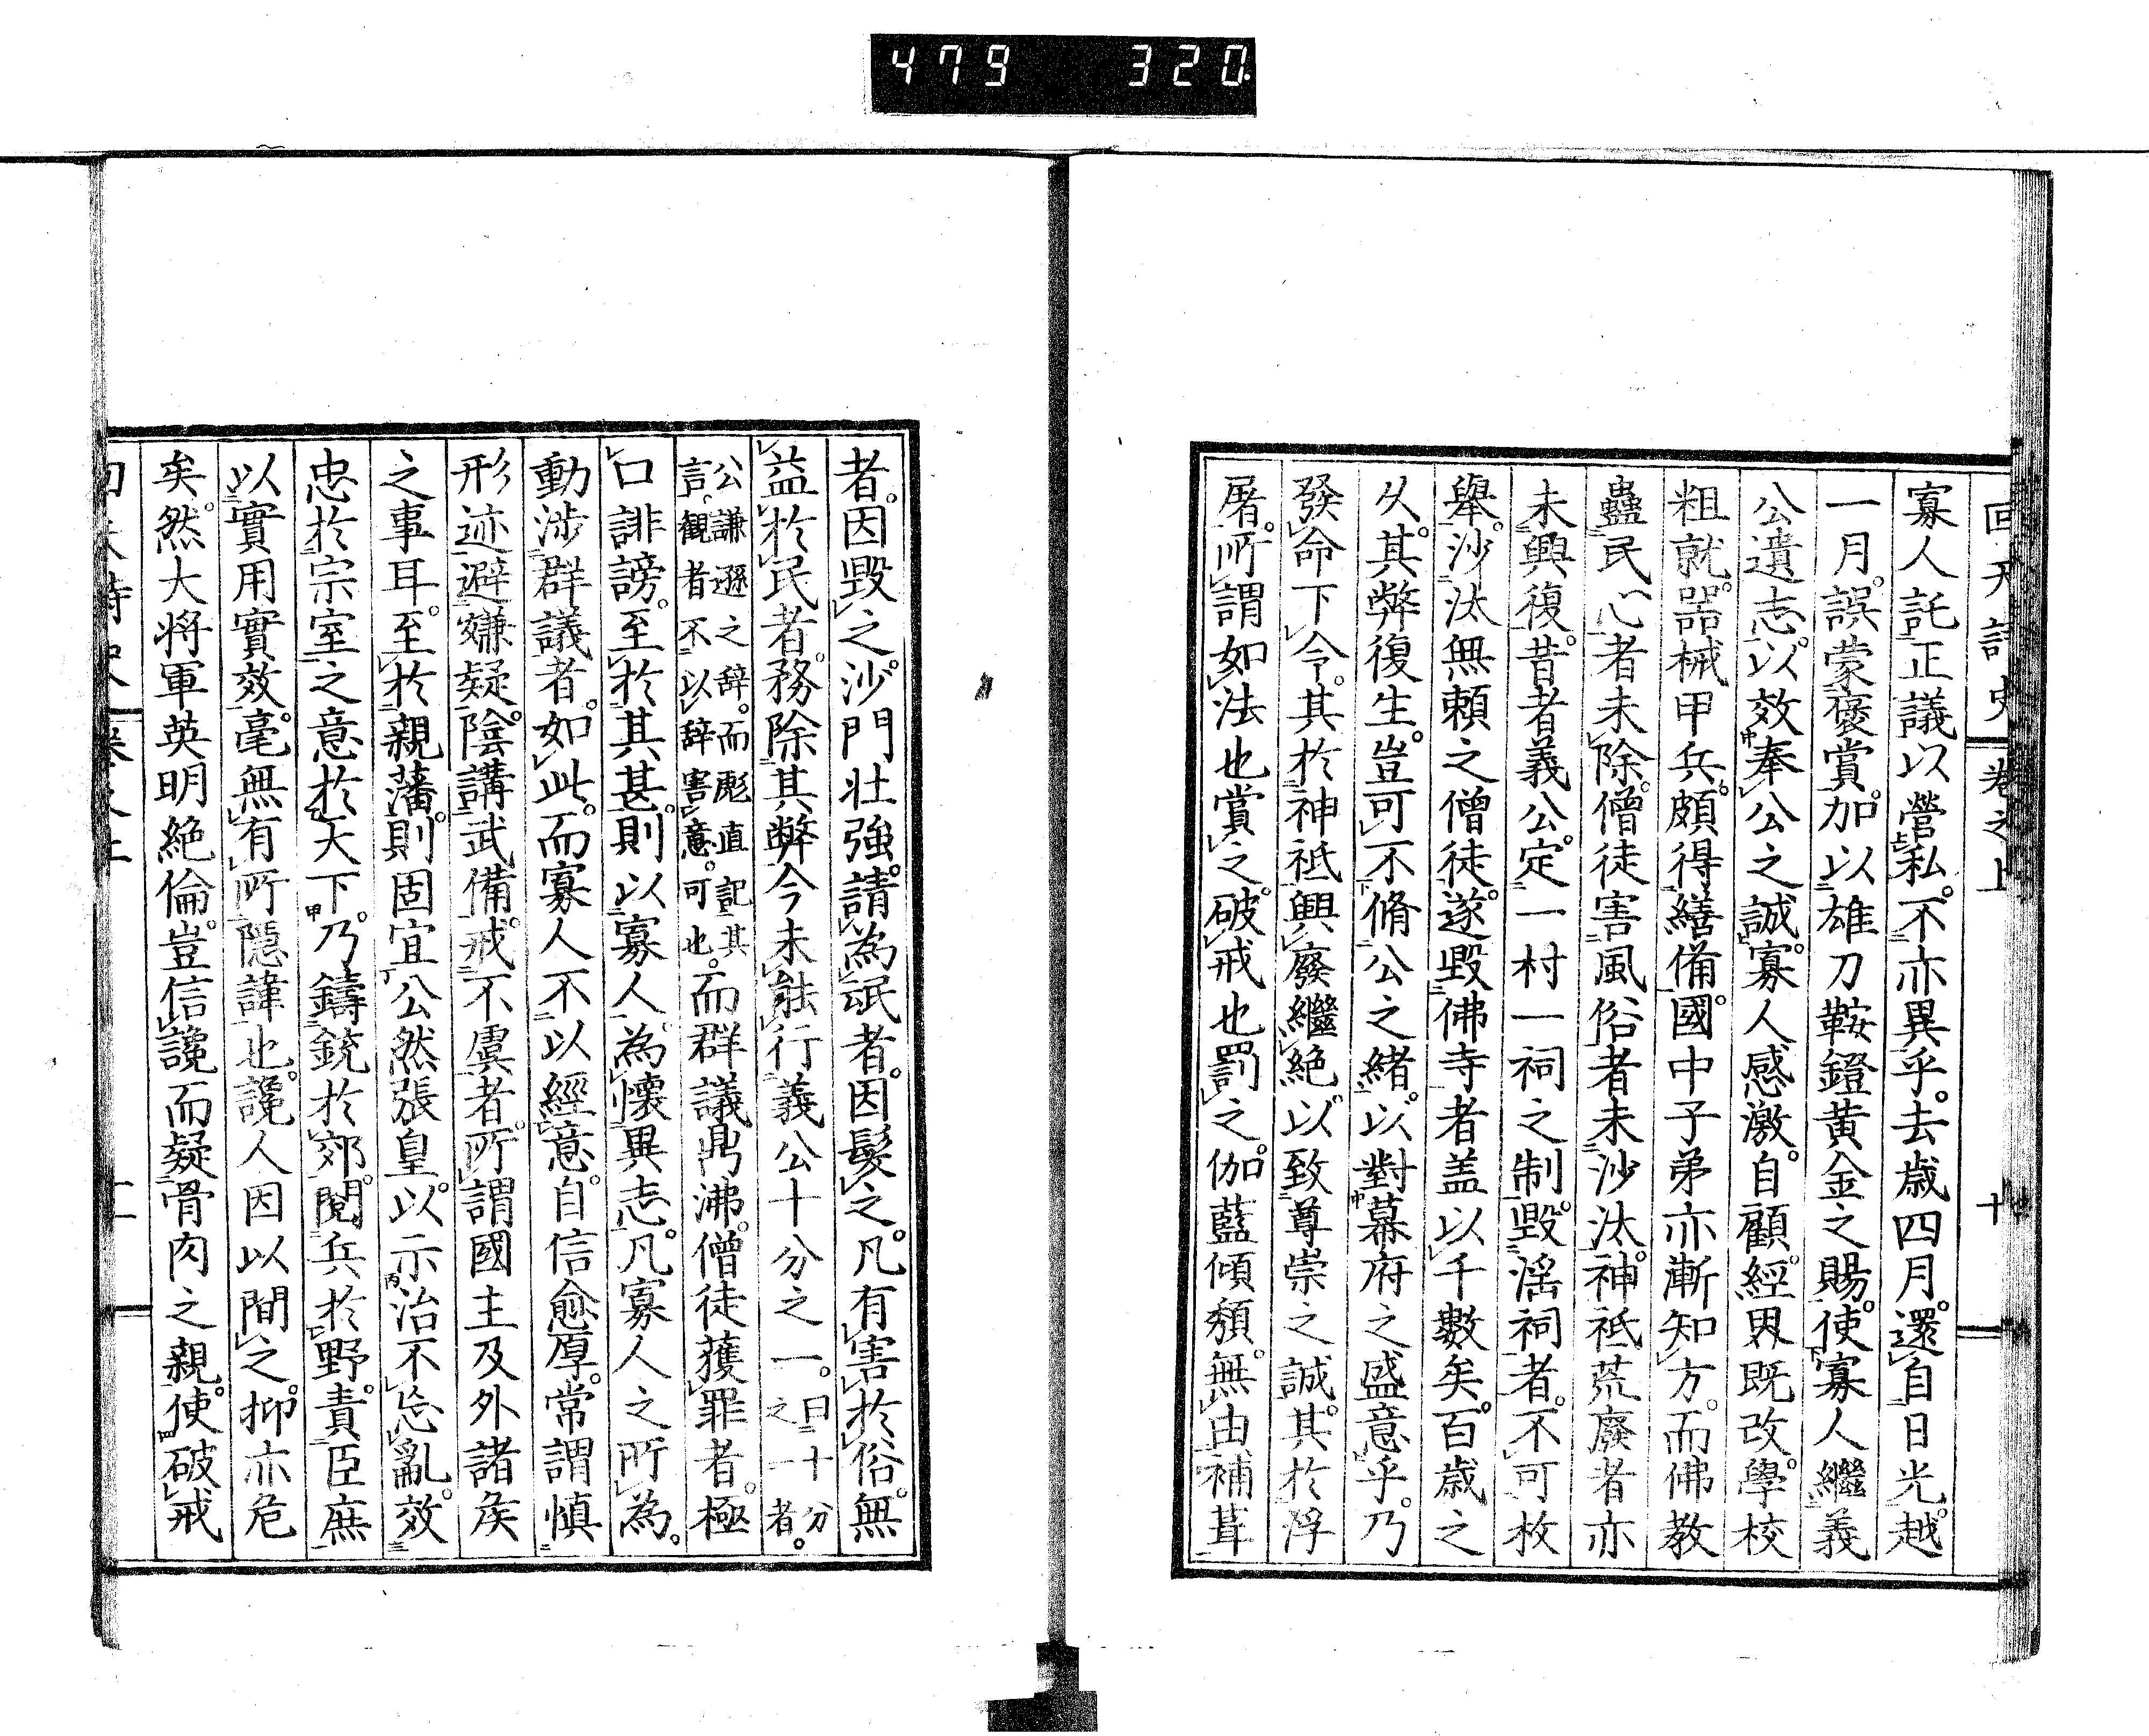 479 320
回天詩史 卷之上 十
寡人託正議以營私。不亦異乎。去歲四月。還自日光。越
一月。誤蒙褒賞。加以雄刀鞍鐙黃金之賜。使寡人繼義
公遺志。以效奉公之誠。寡人感激。自顧。經界既改。學校
粗就。器械甲兵。頗得繕備。國中子弟亦漸知方。而佛教
蠱民心者未除。僧徒害風俗者未沙汰。神祇荒廢者亦
未興復。昔者義公。定一村一祠之制。毀淫祠者。不可枚
舉。沙汰無賴之僧徒。遂毀佛寺者盖以千數矣。百歲之
久。其弊復生。豈可不脩公之緒。以對幕府之盛意乎。乃
發命下令。其於神祇興廢繼絕。以致尊崇之誠。其於浮
屠。所謂如法也賞之。破戒也罰之。伽藍傾頹。無由補葺
者。因毀之。沙門壯強。請為氓者。因髮之。凡有害於俗。無
益於民者。務除其弊今未能行義公十分之一。曰十分之一者。
公謙遜之辞。而彪直記其言。觀者不以辞害意。可也。而群議鼎沸。僧徒獲罪者。極
口誹謗。至於其甚。則以寡人為懷異志。凡寡人之所為。
動涉群議者。如此。而寡人不以經意。自信愈厚。常謂慎
形迹避嫌疑。陰講武備。戒不虞者。所謂國主及外諸矦
之事耳。至於親藩。則固宜公然張皇。以示治不忘亂。效
忠於宗室之意於天下。乃鑄銃於郊。閱兵於野。責臣庶
以實用實效。毫無有所隱諱也。讒人因以間之。抑亦危
矣。然大将軍英明絕倫。豈信讒而疑骨肉之親。使破戒